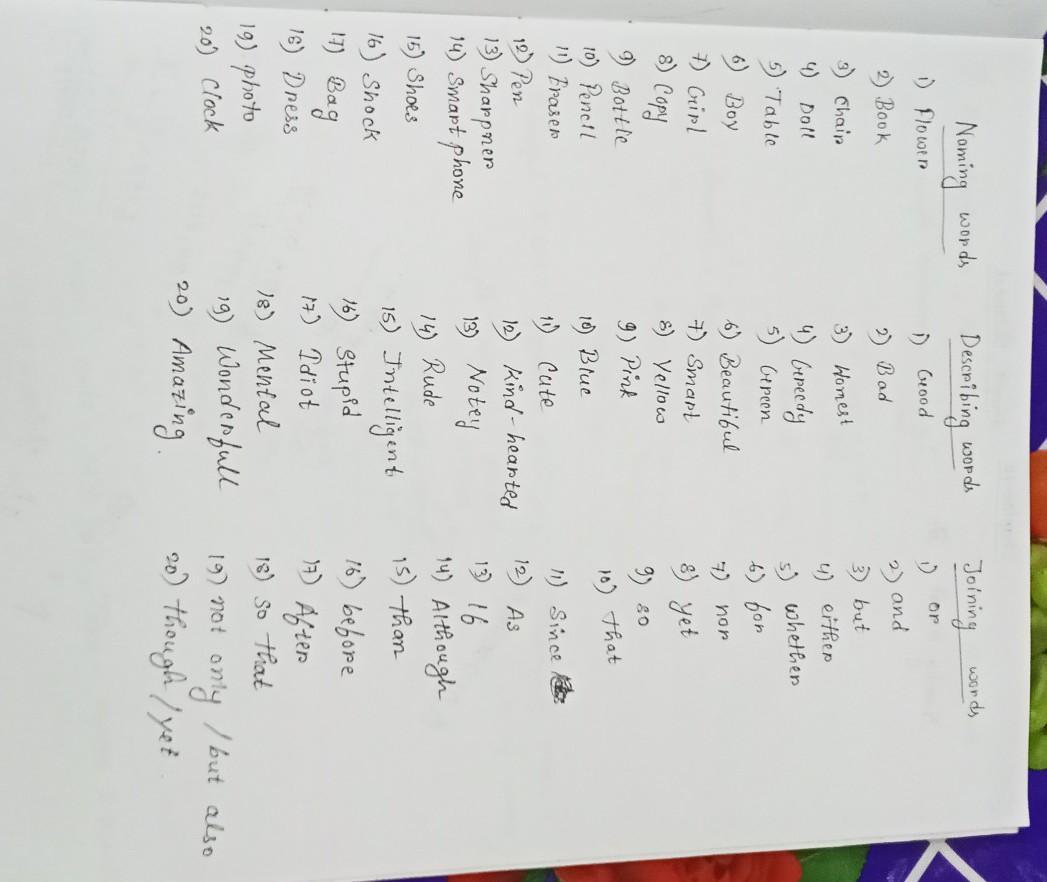 Naming words
1) Flower
2) Book
3) Chair
4) Doll
5) Table
6) Boy
7) Girl
8) Copy
9) Bottle
10) Pencil
11) Eraser
12) Pen
13) Sharpner
14) Smart phone
15) Shoes
16) Shock
17) Bag
18) Dress
19) photo
20) Clock
Describing words
1) Good
2) Bad
3) Honest
4) Greedy
5) Green
6) Beautiful
7) Smart
8) Yellow
9) Pink
10) Blue
11) Cute
12) Kind-hearted
13) Notey
14) Rude
15) Intelligent
16) Stupid
17) Idiot
18) Mental
19) Wonderfull
20) Amazing.
Joining words
1) or
2) and
3) but
4) either
5) whether
6) for
7) nor
8) yet
9) so
10) that
11) Since
12) As
13) If
14) Although
15) than
16) before
17) After
18) so that
19) not only / but also
20) though / yet.